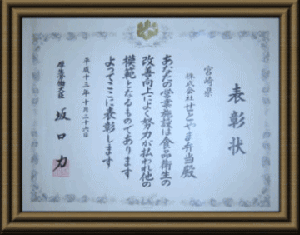 表彰状
宮崎県
株式会社せとやま弁当殿
あなたの営業施設は食品衛生の
改善向上によく努力が払われ他の
模範となるものであります
よってここに表彰します
平成十三年十月二十六日
厚生労働大臣
坂口力